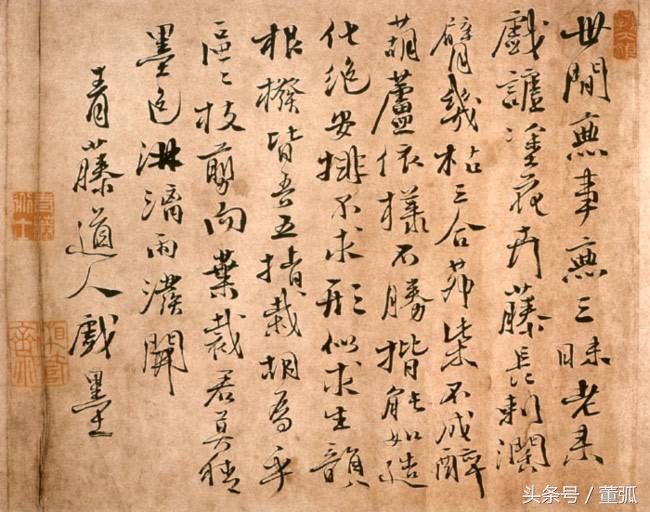 世間無事無三昧老来
戲謔塗花卉藤長刺闊
臂幾枯三合茆柴不成醉
葫蘆依樣不勝揩能如造
化絶安排不求形似求生韻
根撥皆吾五指栽胡為乎
區〻枝剪而葉裁君莫猜
墨色淋漓雨潑開
青藤道人戲墨
头条号 / 董弧